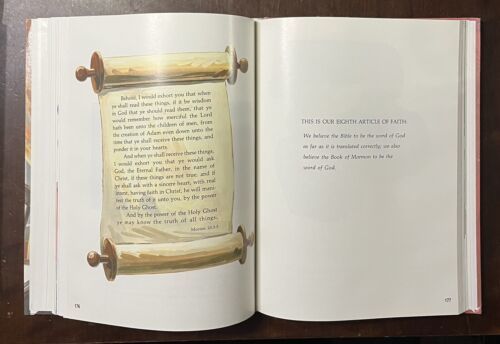 Behold, I would exhort you that when
ye shall read these things, if it be wisdom
in God that ye should read them, that ye
would remember how merciful the Lord
hath been unto the children of men, from
the creation of Adam even down unto the
time that ye shall receive these things, and
ponder it in your hearts.
And when ye shall receive these things,
I would exhort you that ye would ask
God, the Eternal Father, in the name of
Christ, if these things are not true; and if
ye shall ask with a sincere heart, with real
intent, having faith in Christ, he will mani-
fest the truth of it unto you, by the power
of the Holy Ghost.
And by the power of the Holy Ghost
ye may know the truth of all things.
Moroni 10:3-5
176
THIS IS OUR EIGHTH ARTICLE OF FAITH:
We believe the Bible to be the word of God
as far as it is translated correctly; we also
believe the Book of Mormon to be the
word of God.
177